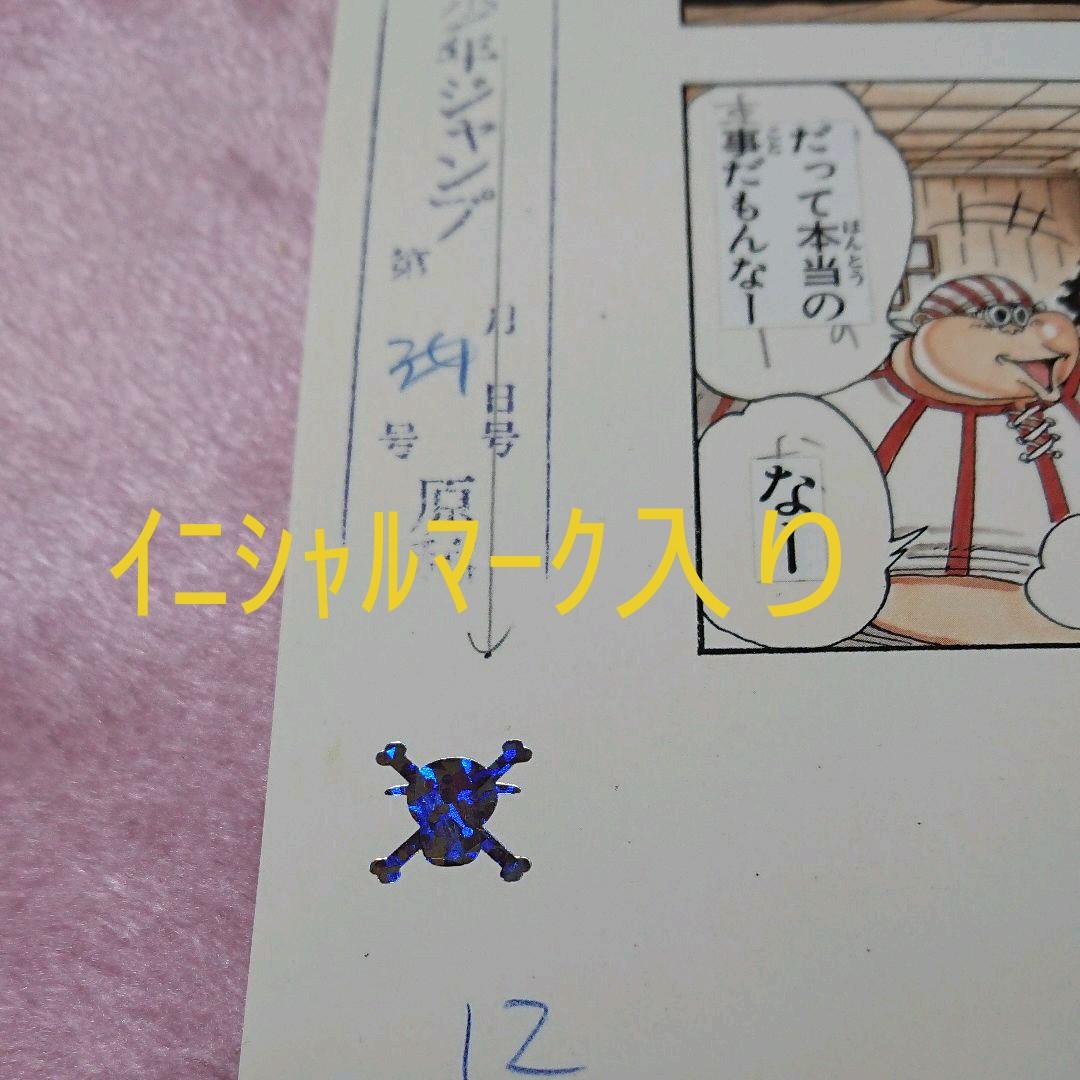 少年ジャンプ
第34号
月日号
原稿
だって本当の
ほんとう
事だもんなー
こと
なー
イニシャルマーク入り
12